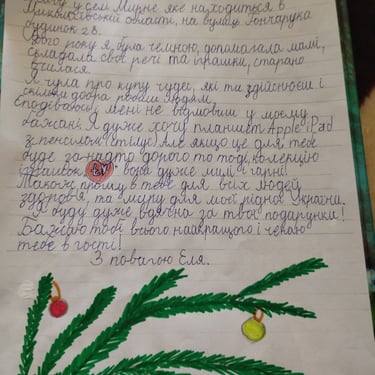 живу у селі Мирне яке находиться в
Миколаївській області, на вулиці Гончарука
будинок 28.
Цього року я була чемною, допомагала мамі,
складала свої речі та іграшки, старанно
вчилася.
Я чула про купу чудес, які ти здійснюєш і
скільки добра робиш людям.
Сподіваюсь, мені не відмовиш у моєму
бажані. Я дуже хочу планшет Apple iPad
з пенсилом (стілус) Але якщо це для тебе
буде за надто дорого то тоді колекцію
вони дуже милі і гарні!
Також прошу в тебе для всіх людей
здоровʼя, та миру для моєї рідної України.
Я буду дуже вдячна за твої подарунки!
Бажаю тобі всього найкращого і чекаю
тебе в гості!
З повагою Еля.